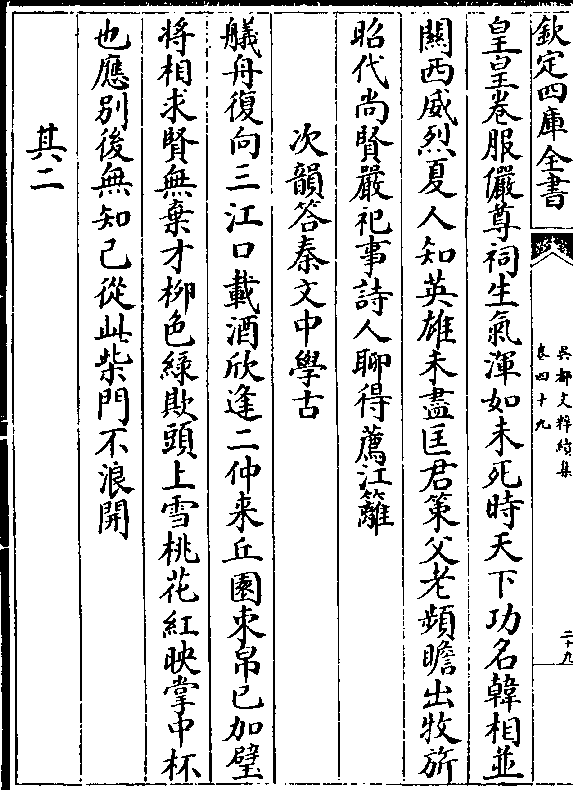 欽定四庫全書
吳都文粹續集
卷四十九
二十九
皇皇卷服儼尊祠生氣渾如未死時天下功名韓相並
關西威烈夏人知英雄未盡匡君策父老頻瞻出牧旂
昭代尚賢嚴祀事詩人聊得薦江蘺
次韻答秦文中學古
艤舟復向三江口載酒欣逢二仲来丘園束帛已加璧
将相求賢無棄才柳色綠欺頭上雪桃花紅映掌中杯
也應别後無知己從此柴門不浪開
其二